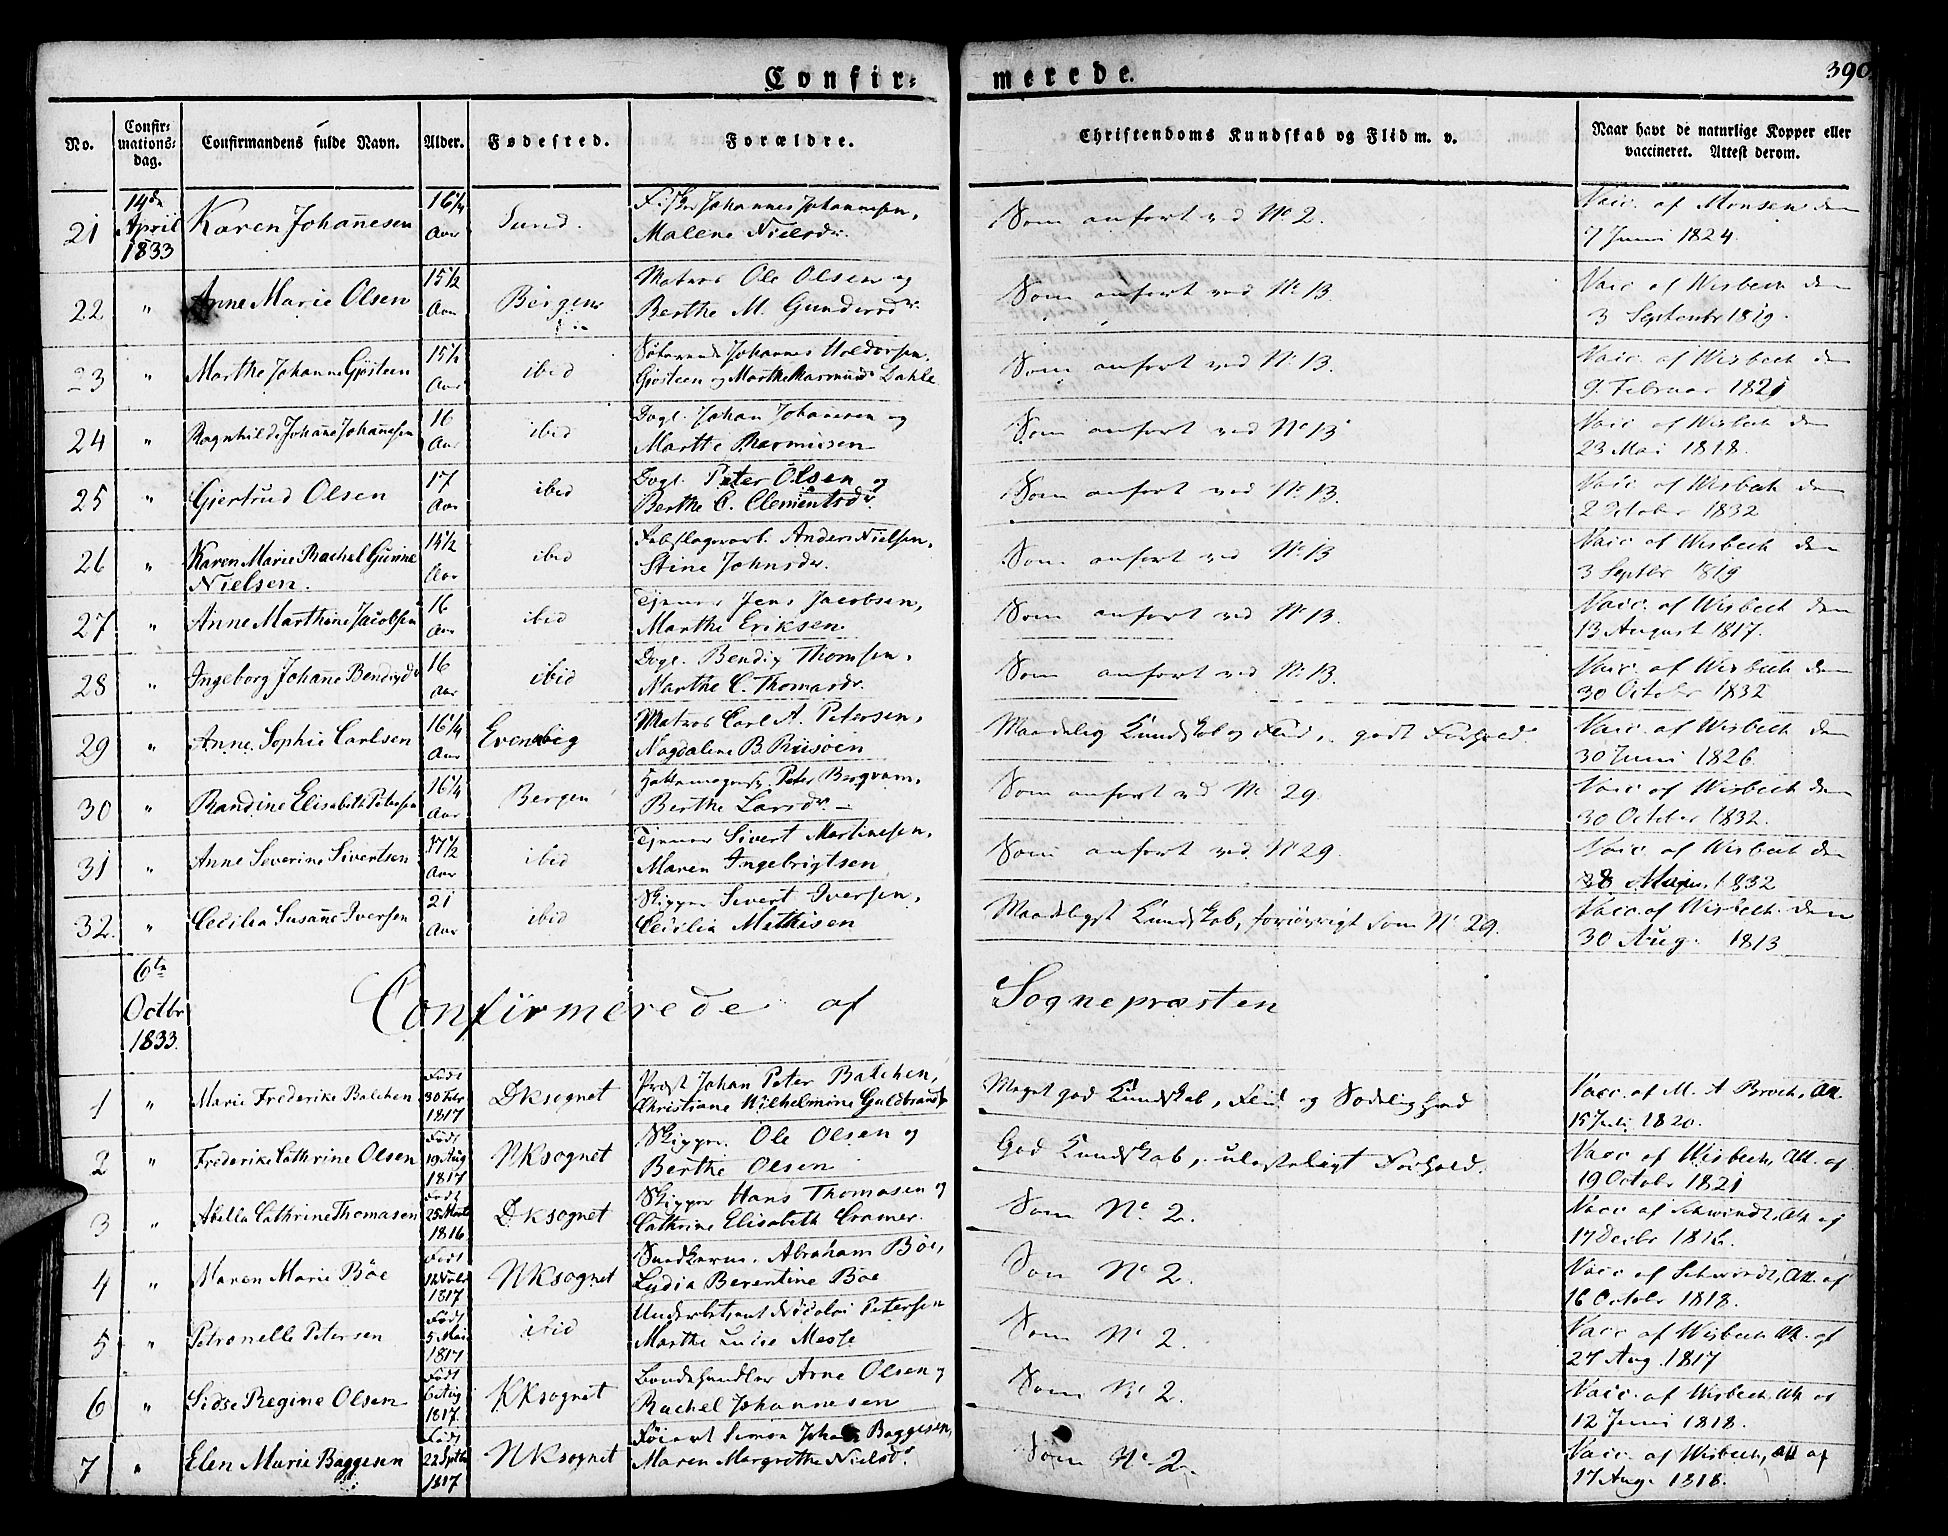 Confir= merede.
390
No.
Confir=
mations=
dag.
Confirmandens fulde Navn.
Alder.
Fødested.
Forældre.
Christendoms Kundskab og Flid m. v.
Naar havt de naturlige Kopper eller
vaccineret. Attest derom.
21 14de April 1833 Karen Johannesen 16¼ Aar Sund. Fisker Johannes Johannesen,
Malene Nielsdr. Som anført ved No 2. Vacc. af Monsen den
7 Juni 1824.
22 " Anne Marie Olsen 15½ Aar Bergen Matros Ole Olsen og
Berthe M. Gundersdr. Som anført ved No 13. Vacc. af Wisbech den
3 Septembr 1819.
23 " Marthe Johanne Gjøsteen 15½ Aar ibid Johannes Holdorsen
Gjøsteen og Marthe Rasmusd. Dahle Som anført ved No 13. Vacc. af Wisbech den
9. Februar 1821
24 " Ragnhilde Johanne Johannesen 16 Aar ibid Dagl. Johan Johannesen og
Marthe Rasmusen Som anført ved No 13 Vacc. af Wisbech den
23 Mai 1818.
25 " Gjertrud Olsen 17 Aar ibid Dagl. Peter Olsen og
Berthe C. Clementsdr. Som anført ved No 13. Vacc. af Wisbech den
2 October 1832
26 " Karen Marie Rachel Gurine
Nielsen. 15½ Aar ibid Anders Nielsen,
Stine Johnsdr. Som anført ved No 13 Vacc. af Wisbech den
3 Septbr 1819
27 " Anne Marthine Jacobsen 16 Aar ibid Tjener Jens Jacobsen,
Marthe Eriksen Som anført ved No 13. Vacc. af Wisbech den
13 August 1817.
28 " Ingeborg Johanne Bendixdr 16 Aar ibid Dagl. Bendix Thomsen,
Marthe C. Thomasdr. Som anført ved No 13. Vacc. af Wisbech den
30 Octobr 1832
29 " Anne Sophie Carlsen 16¼ Aar Evenvig Matros Carl A. Petersen,
Magdalene B. Riisøen Maadelig Kundskab og Flid, godt Forhold. Vacc. af Wisbech den
30 Juni 1826
30 " Randine Elisabeth Petersen 16¼ Aar Bergen Peter Bergvam,
Berthe Larsdr. Som anført ved No 29. Vacc. af Wisbech den
30 October 1832.
31 " Anne Severine Sivertsen 17½ Aar ibid Tjener Sivert Martinesen,
Maren Ingebrigtsen Som anført ved No 29. Vacc. af Wisbech den
28 1832
32. " Cecilia Susanne Iversen 21 Aar ibid Skipper Sivert Iversen,
Cecilia Mathisen Maadeligst Kundskab, forøvrigt som No 29. Vacc. af Wisbech den
30 Aug. 1813
6te Octbr 1833.
Confirmerede af Sognepræsten
1 " Marie Frederike Balchen Født 30 Febr 1817 Dksognet Præst Johan Peter Balchen,
Christiane Wilhelmine Guldbrands Meget god Kundskab, Flid og Sædelighed Vacc. af M. A Broch, Att.
15 Juli 1820.
2 " Frederike Cathrine Olsen Født 19 Aug 1817 NKsognet Skipper Ole Olsen og
Berthe Olsen God Kundskab, ulasteligt Forhold. Vacc af Wisbech, Att. af
19 Octobr 1821
3 " Abella Cathrine Thomasen Født 25 Marts 1816 Dksognet Skipper Hans Thomasen og
Cathrine Elisabeth Cramer. Som No. 2. Vacc af Schwindt, Att af
17 Decbr 1816.
4 " Maren Marie Böe Født 1817 NKsognet Abraham Böe,
Lydia Berentine Böe Som No. 2. Vacc af Schwindt, Att. af
16 Octobr 1818.
5 " Petronelle Petersen Født 5 Mai 1817 ibid Nicolai Petersen
Marthe Lucie Som No. 2. Vacc af Wisbech Att. af
27 Aug. 1817
6 " Sidse Regine Olsen Født 6 Aug 1817. KKsognet Arne Olsen og
Rachel Johannesen Som No 2. Vacc. af Wisbech, Att af
12 Juni 1818.
7 " Elen Marie Baggesen Født 22 Septbr 1817 NKsognet Simon Johan Baggesen,
Maren Margrethe Nielsdr. Som No. 2. Vacc. af Wisbech, Att af
17 Aug. 1818.